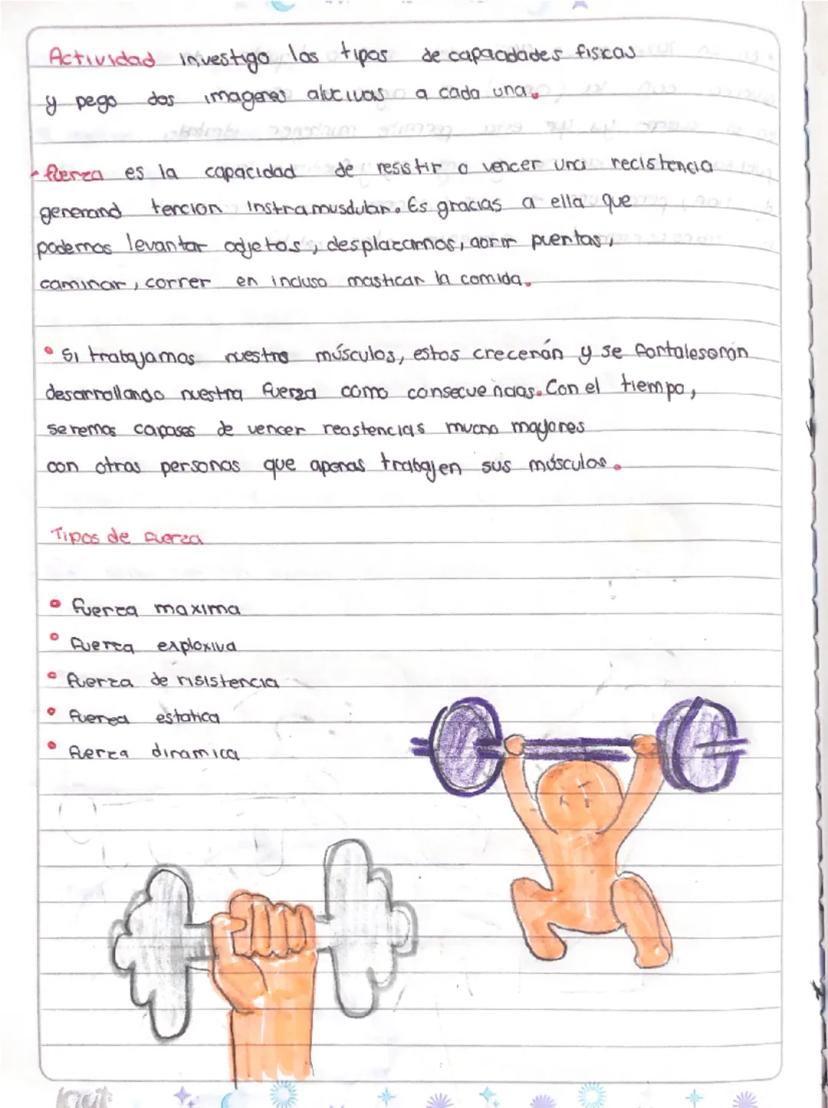 Actividad investigo los tipos de capacidades fisicas
y pego dos imagenes alucivas a cada una.
fuerza es la capacidad de resistir o vencer una recistencia
generand tencion instramusdular. Es gracias a ella que
podemos levantar odjetos, desplazarnos, aorir puertas,
caminar, correr en incluso masticar la comida.
• Si trabajamos nuestro músculos, estos crecerán y se fortaleserán
desarrollando nuestra fuerza como consecuencias. Con el tiempo,
seremos capases de vencer reastencias mucho mayores
con otras personas que apenas trabajen sus músculos.
Tipos de fuerza
• fuerza maxima
• fuerza exploxiva
• fuerza de risistencia
• fuerza estatica
• fuerza dinamica